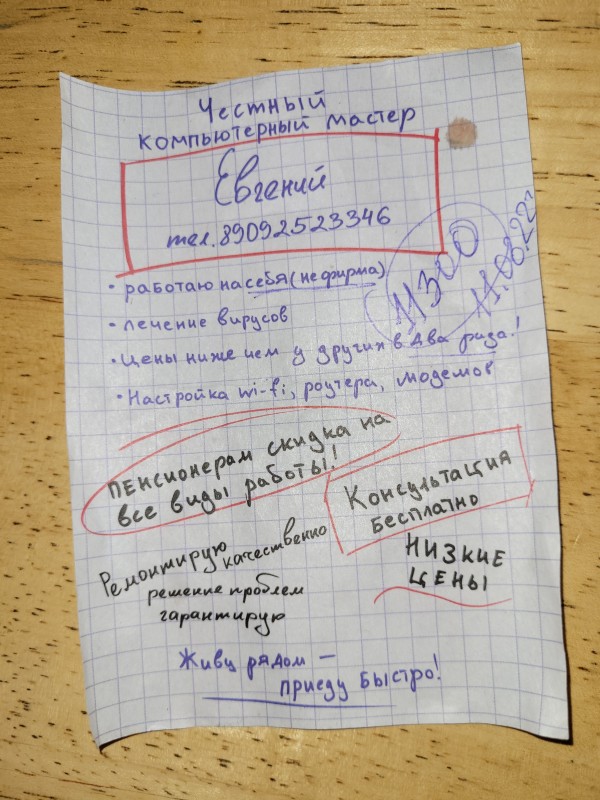 Честный
компьютерный мастер
Евгений
тел. 89092523346
11300
11.08.22г
• работаю на себя (не фирма)
• лечение вирусов
• Цены ниже чем у других в Два раза!
• Настройка wi-fi, роутера, модемов
Пенсионерам скидка на
все виды работы!
Консультация
бесплатно
Ремонтирую качественно
решение проблем
гарантирую
Низкие
цены
Живу рядом —
приеду быстро!